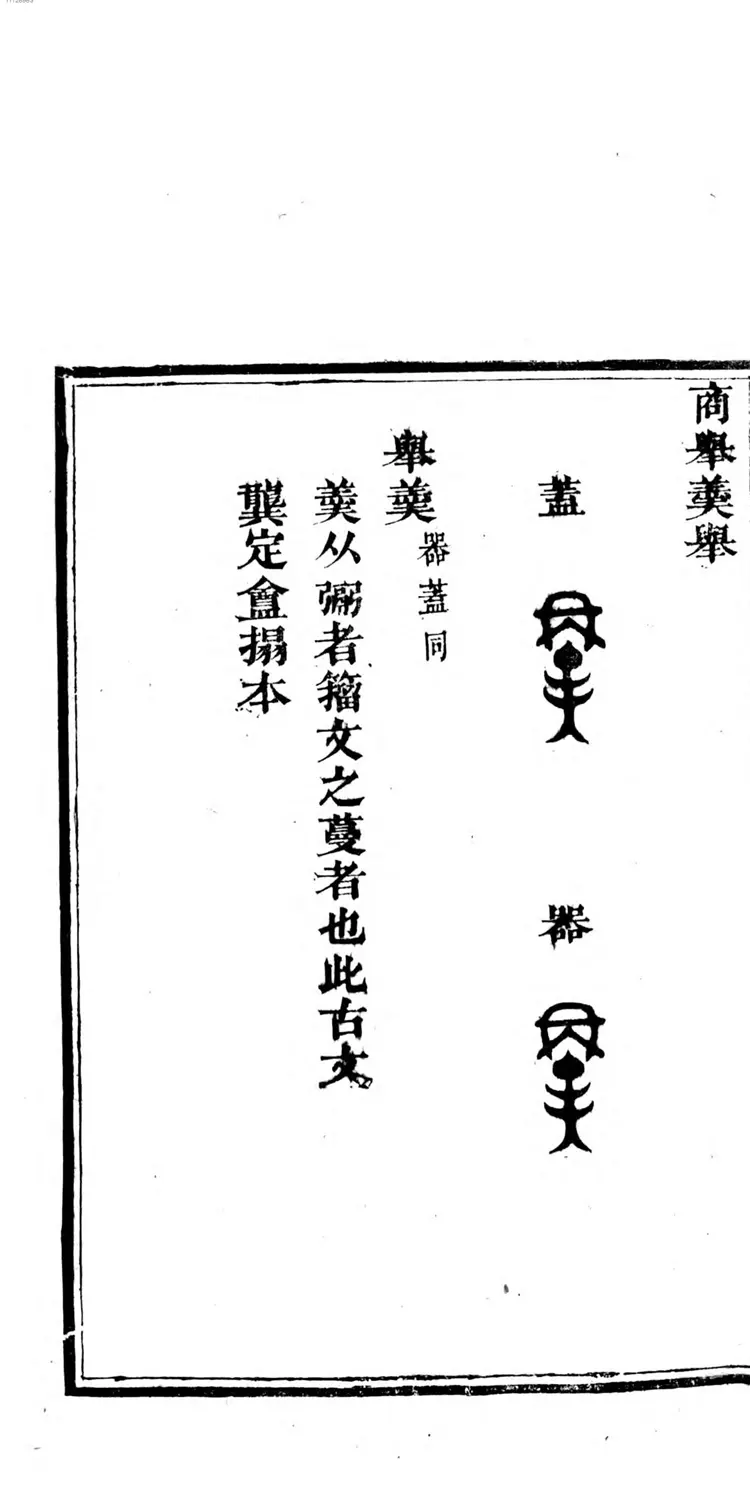 商舉羹舉
蓋
器
舉羹 器蓋同
羹从䰜者籀文之蔓者也此古文
龔定盦搨本